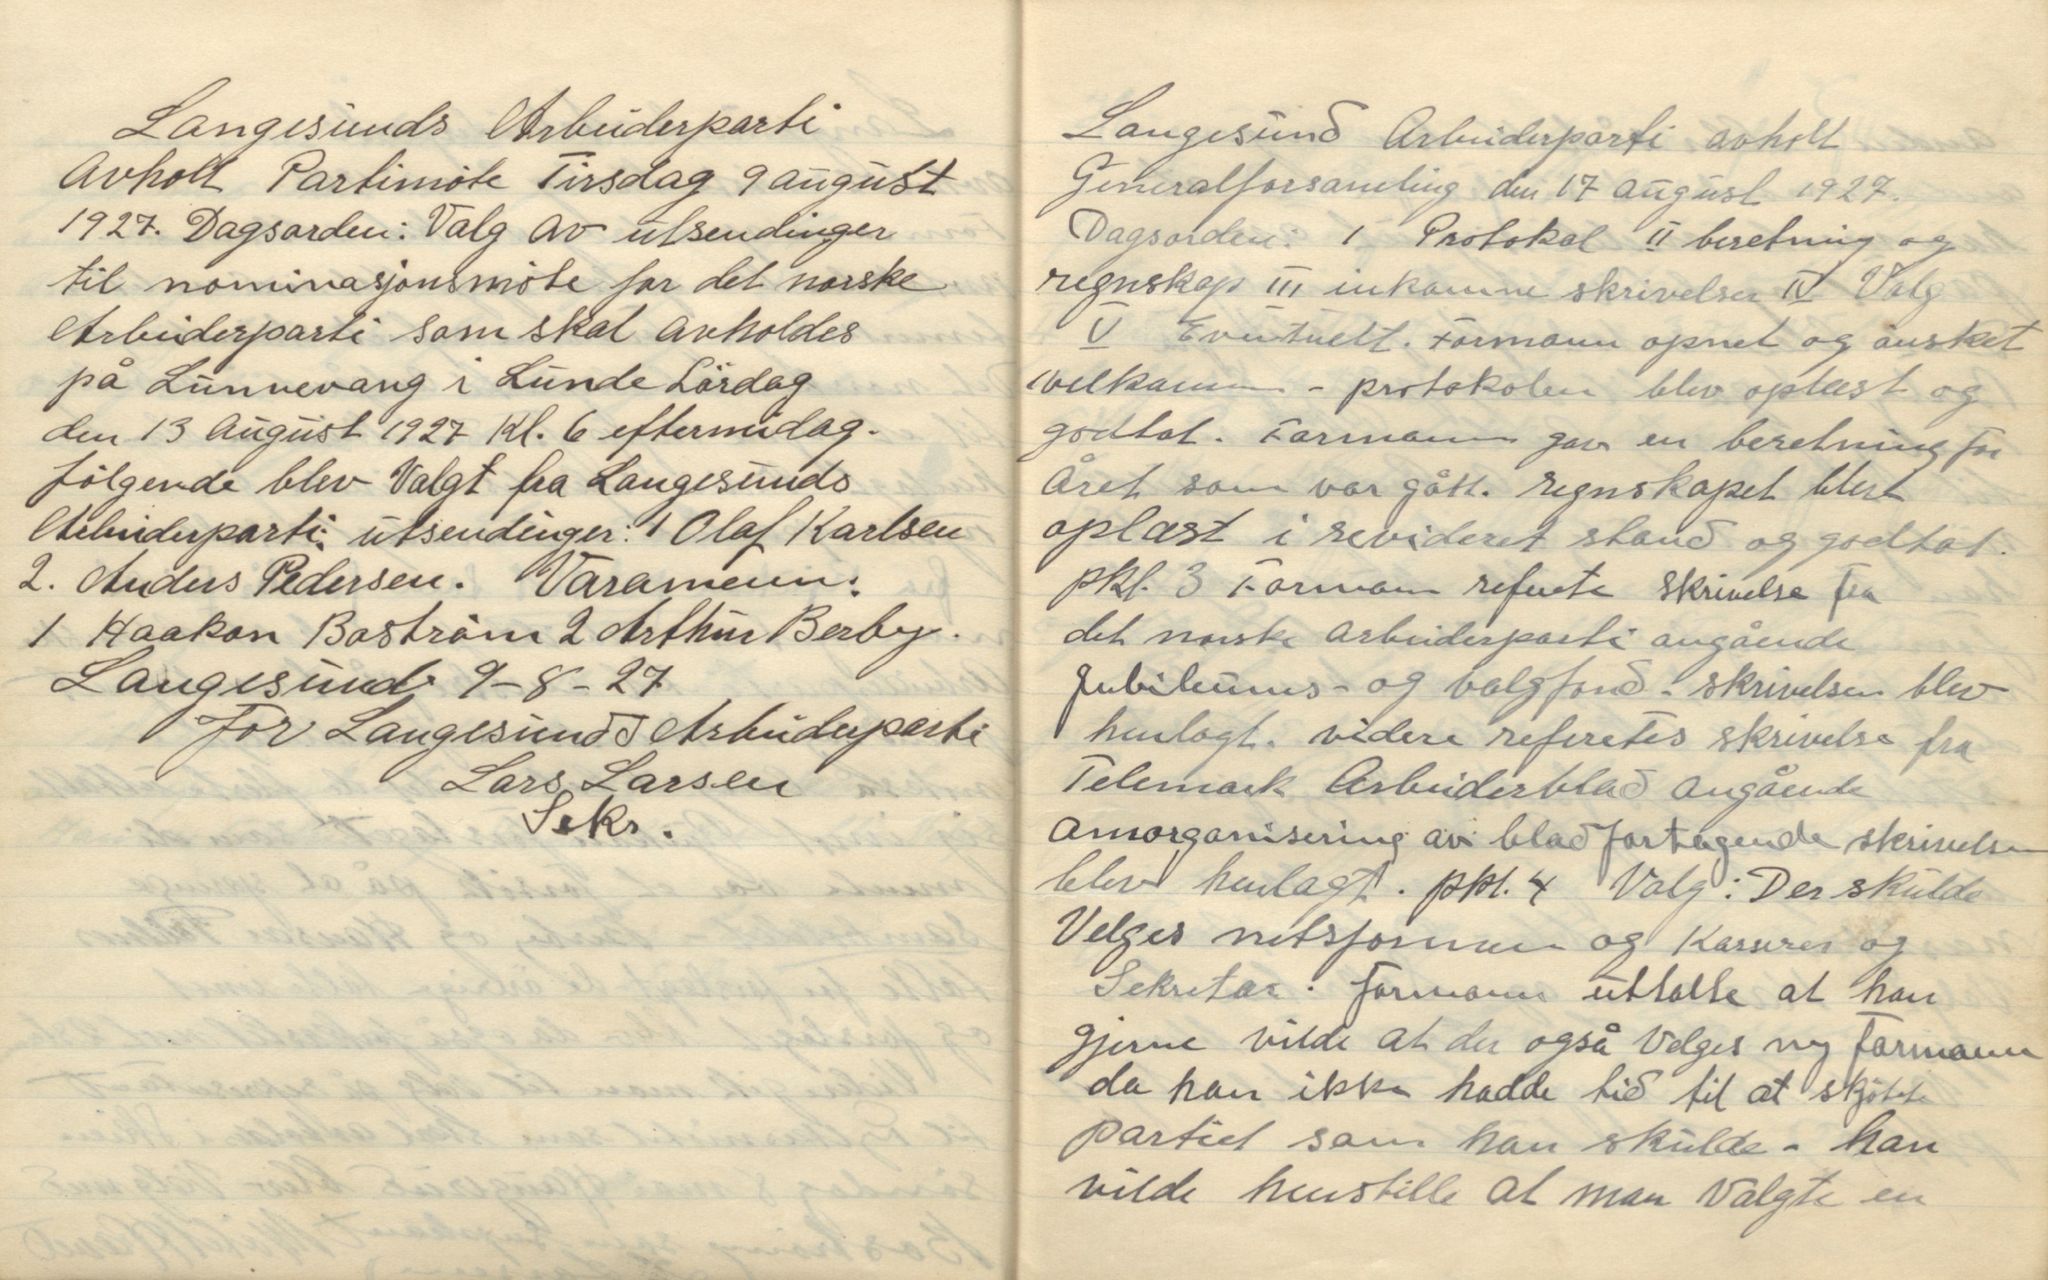 Langesunds Arbeiderparti
Avholt Partimöte Tirsdag 9 august
1927. Dagsorden: Valg av utsendinger
til nominasjonsmöte for det norske
Arbeiderparti som skal avholdes
på Lunnevang i Lunde Lördag
den 13 august 1927 Kl. 6 eftermidag.
fölgende blev Valgt fra Langesunds
Arbeiderparti: utsendinger: 1 Olaf Karlsen
2. Anders Pedersen. Varamenn:
1 Haakon Boström 2 Arthur Berby.
Langesund 9-8-27
For Langesunds Arbeiderparti
Lars Larsen
Sekr.
Langesund Arbeiderparti avholt
Generalforsamling den 17 august 1927.
Dagsorden: I Protokol II beretning og
regnskap III inkomne skrivelser IV Valg
V Eventuelt. Formann opnet og önsket
velkommen - protokolen blev oplæst og
godtat. Formann gav en beretning for
Året som var gått. regnskapet blev
oplæst i revideret stand og godtat.
pkt. 3 Formann referete skrivelse fra
det norske arbeiderparti angående
Jubileums- og valgfond - skrivelsen blev
henlagt. videre referetes skrivelse fra
Telemark Arbeiderblad angående
omorganisering av bladforetagende skrivelsen
blev henlagt. pkt. 4 Valg: Der skulde
Velges nestformann og Kasserer og
Sekretær. formann uttalte at han
gjerne vilde at der også Velges ny Formann
da han ikke hadde tid til at skjötte
partiet som han skulde - han
vilde henstille at man Valgte en